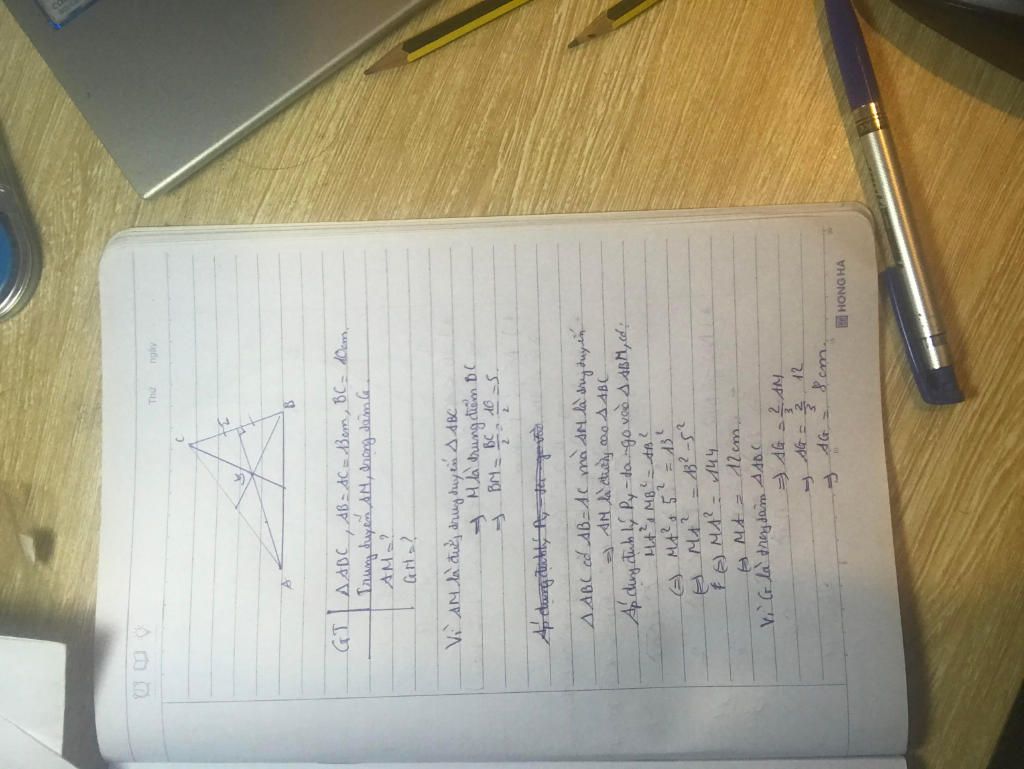 Thứ
ngày
C
I
G
A
B
GT ΔABC, AB = AC = 13cm, BC = 10cm.
Trung tuyến AM, trọng tâm G.
AM = ?
GM = ?
Vì AM là đường trung tuyến ΔABC
=> M là trung điểm BC
=> BM = BC/2 = 10/2 = 5.
Áp dụng định lý Py-ta-go vào
ΔABC có AB = AC mà AM là trung tuyến
=> AM là đường cao ΔABC
Áp dụng định lý Py-ta-go vào ΔABM, có:
MA² + MB² = AB²
(=) MA² + 5² = 13²
(=) MA² = 13² - 5²
(=) MA² = 144
(=) MA = 12cm.
Vì G là trọng tâm ΔABC
=> AG = 2/3 AM
=> AG = 2/3 12
=> AG = 8cm.
HONG HA